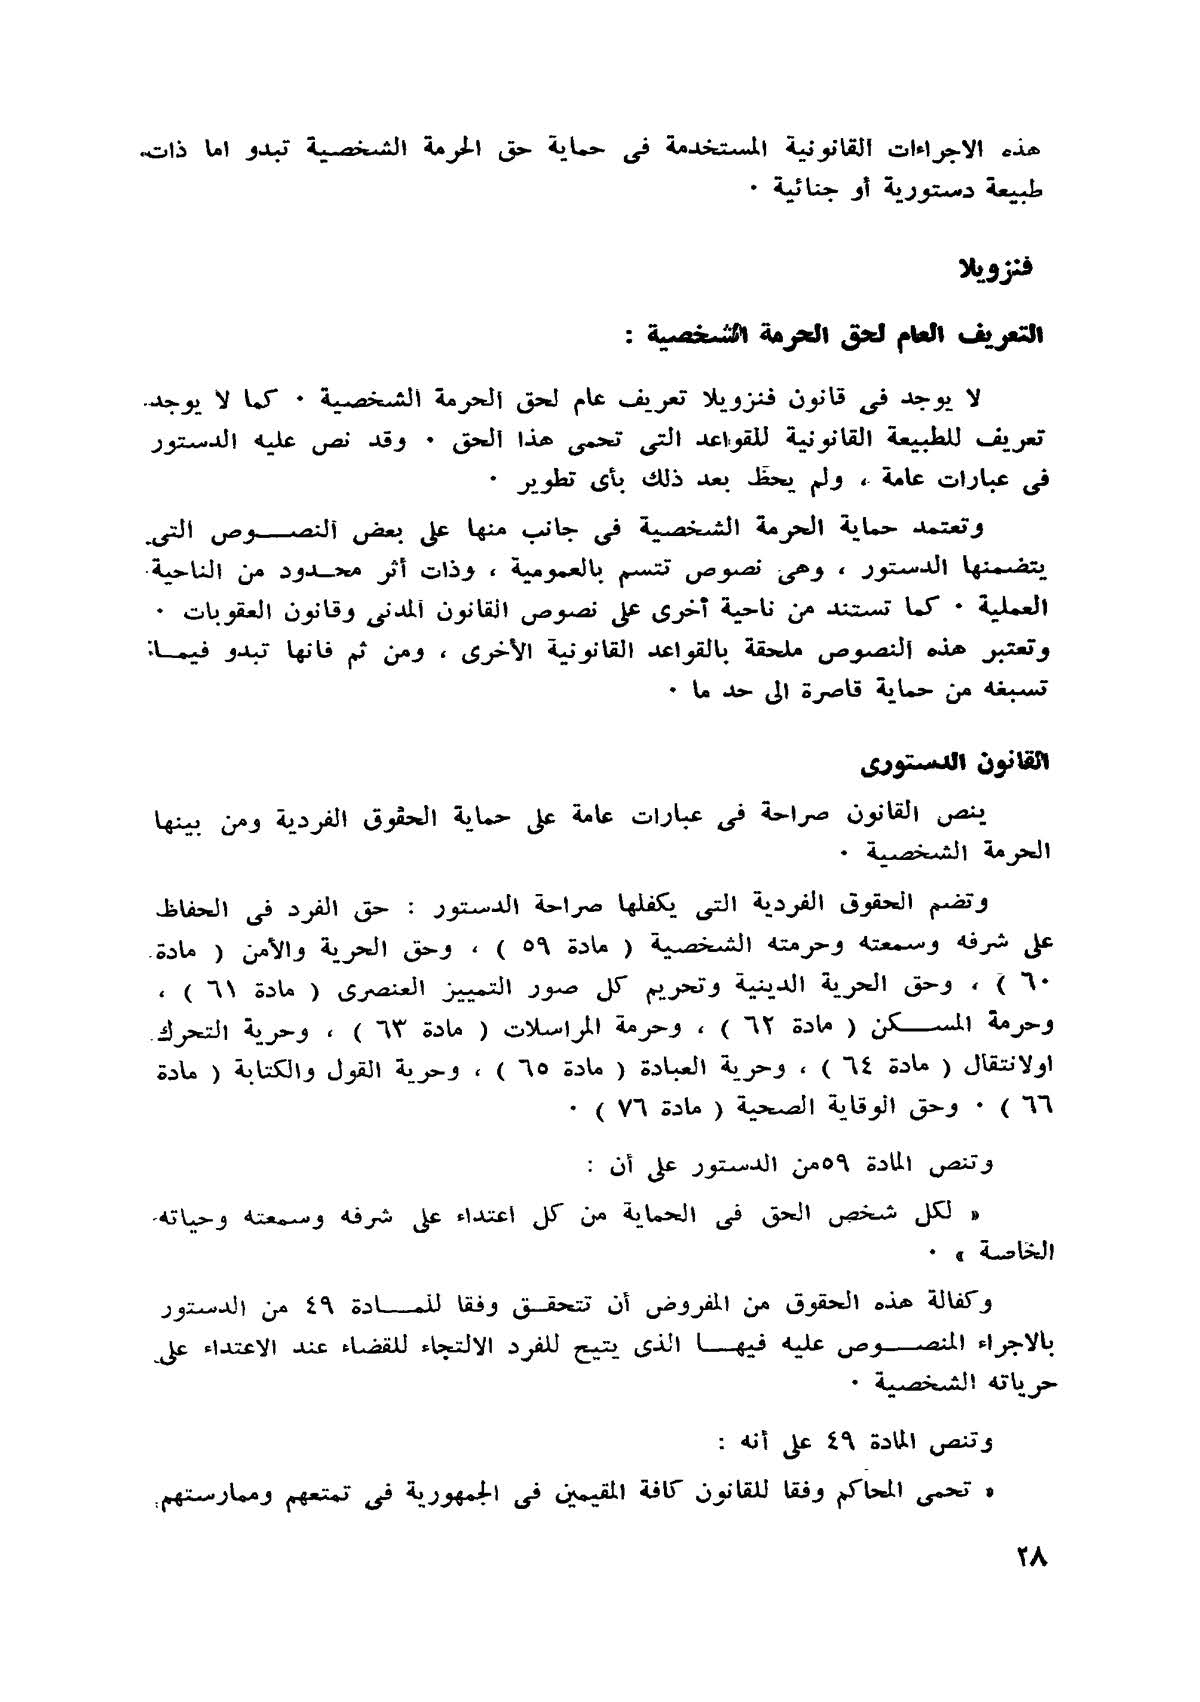 هذه الاجراءات القانونية المستخدمة فى حماية حق الحرمة الشخصية تبدو اما ذات
طبيعة دستورية أو جنائية ٠
فنزويلا
التعريف العام لحق الحرمة الشخصية :
لا يوجد فى قانون فنزويلا تعريف عام لحق الحرمة الشخصية ٠ كما لا يوجد
تعريف للطبيعة القانونية للقواعد التى تحمى هذا الحق ٠ وقد نص عليه الدستور
فى عبارات عامة ، ولم يحظ بعد ذلك بأى تطوير ٠
وتعتمد حماية الحرمة الشخصية فى جانب منها على بعض النصـــوص التى
يتضمنها الدستور ، وهى نصوص تتسم بالعمومية ، وذات أثر محـدود من الناحية
العملية ٠ كما تستند من ناحية أخرى على نصوص القانون المدنى وقانون العقوبات ٠
وتعتبر هذه النصوص ملحقة بالقواعد القانونية الأخرى ، ومن ثم فانها تبدو فيمـا
تسبغه من حماية قاصرة الى حد ما ٠
القانون الدستورى
ينص القانون صراحة فى عبارات عامة على حماية الحقوق الفردية ومن بينها
الحرمة الشخصية ٠
وتضم الحقوق الفردية التى يكفلها صراحة الدستور : حق الفرد فى الحفاظ
على شرفه وسمعته وحرمته الشخصية ( مادة ٥٩ ) ، وحق الحرية والأمن ( مادة
٦٠ ) ، وحق الحرية الدينية وتحريم كل صور التمييز العنصرى ( مادة ٦١ ) ،
وحرمة المســكن ( مادة ٦٢ ) ، وحرمة المراسلات ( مادة ٦٣ ) ، وحرية التحرك
اولانتقال ( مادة ٦٤ ) ، وحرية العبادة ( مادة ٦٥ ) ، وحرية القول والكتابة ( مادة
٦٦ ) ٠ وحق الوقاية الصحية ( مادة ٧٦ ) ٠
وتنص المادة ٥٩من الدستور على أن :
« لكل شخص الحق فى الحماية من كل اعتداء على شرفه وسمعته وحياته
الخاصة » ٠
وكفالة هذه الحقوق من المفروض أن تتحقـق وفقا للمــادة ٤٩ من الدستور
بالاجراء المنصـــوص عليه فيهــا الذى يتيح للفرد الالتجاء للقضاء عند الاعتداء على
حرياته الشخصية ٠
وتنص المادة ٤٩ على أنه :
« تحمى المحاكم وفقا للقانون كافة المقيمين فى الجمهورية فى تمتعهم وممارستهم
٢٨